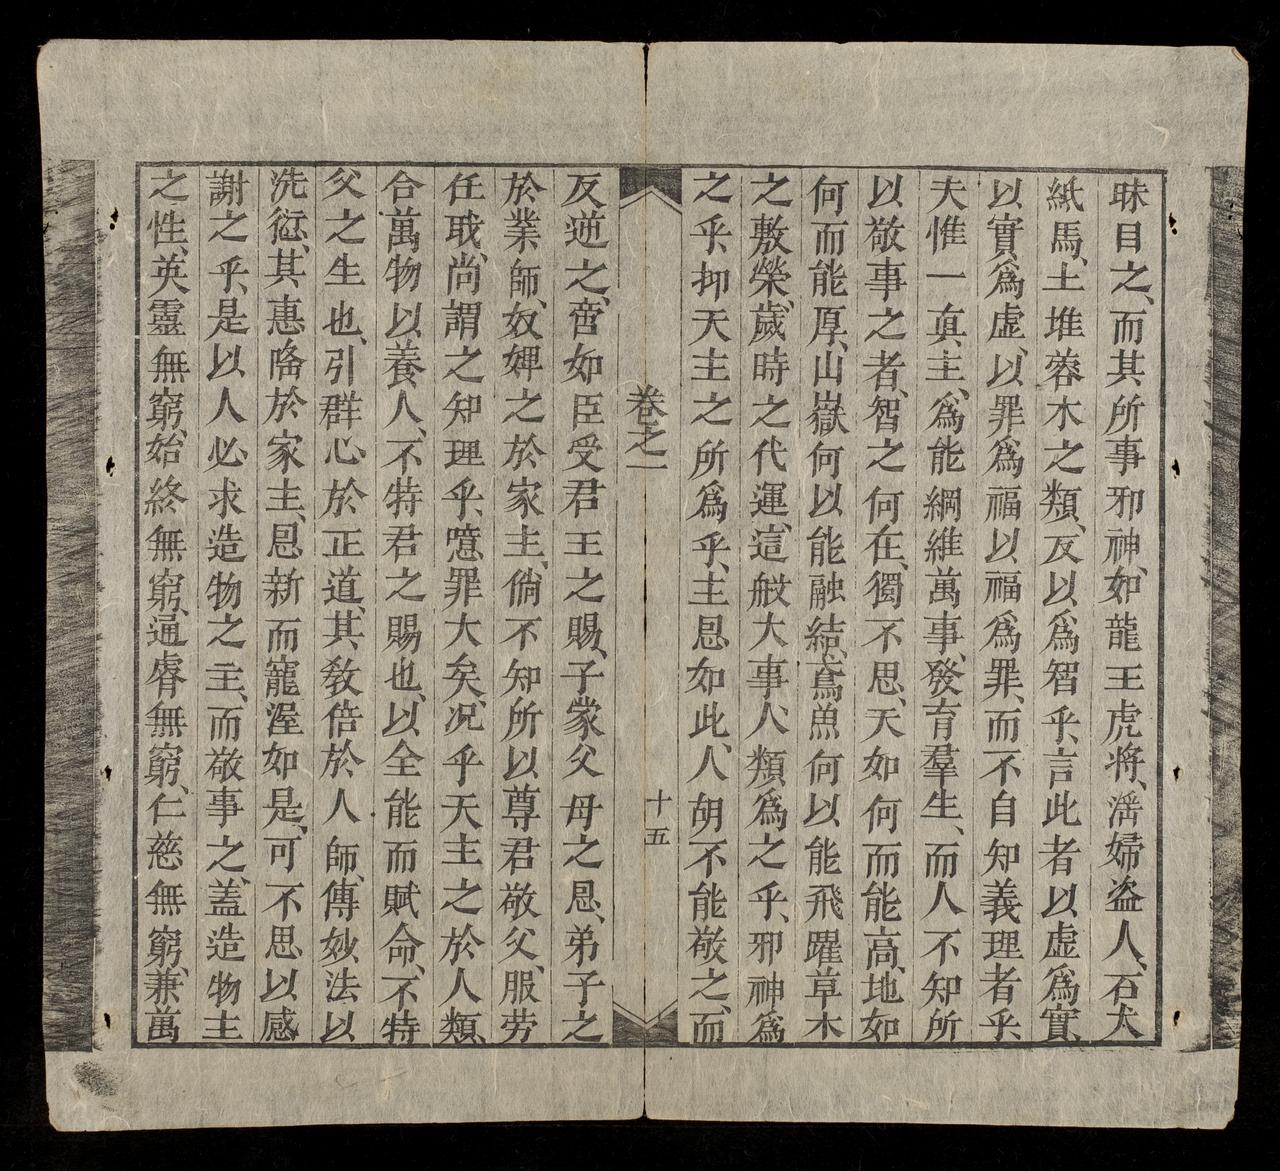 昧目之、而其所事邪神、如龍王虎將、淫婦盗人、石犬
紙馬、土堆蓉木之類、反以爲智乎、言此者以虛爲實、
以實爲虛、以罪爲福以福爲罪、而不自知義理者乎、
夫惟一眞主、爲能綱維萬事、發育羣生、而人不知所
以敬事之者、智之何在、獨不思、天如何而能高、地如
何而能厚、山嶽何以能融結、鳶魚何以能飛躍草木
之敷榮、歲時之代運、這般大事、人類爲之乎、邪神爲
之乎、抑天主之所爲乎、主恩如此、人胡不能敬之、而
卷之一
十五
反逆之、啻如臣受君王之賜、子蒙父母之恩、弟子之
於業師、奴婢之於家主、倘不知所以尊君敬父、服劳
任職、尚謂之知理乎、噫罪大矣、况乎天主之於人類、
合萬物以養人、不特君之賜也、以全能而賦命、不特
父之生也、引群心於正道、其教倍於人師、傳妙法以
洗愆、其惠隆於家主、恩新而寵渥如是、可不思以感
謝之乎、是以人必求造物之主、而敬事之、蓋造物主
之性、英靈無窮、始終無窮、通睿無窮、仁慈無窮、兼萬